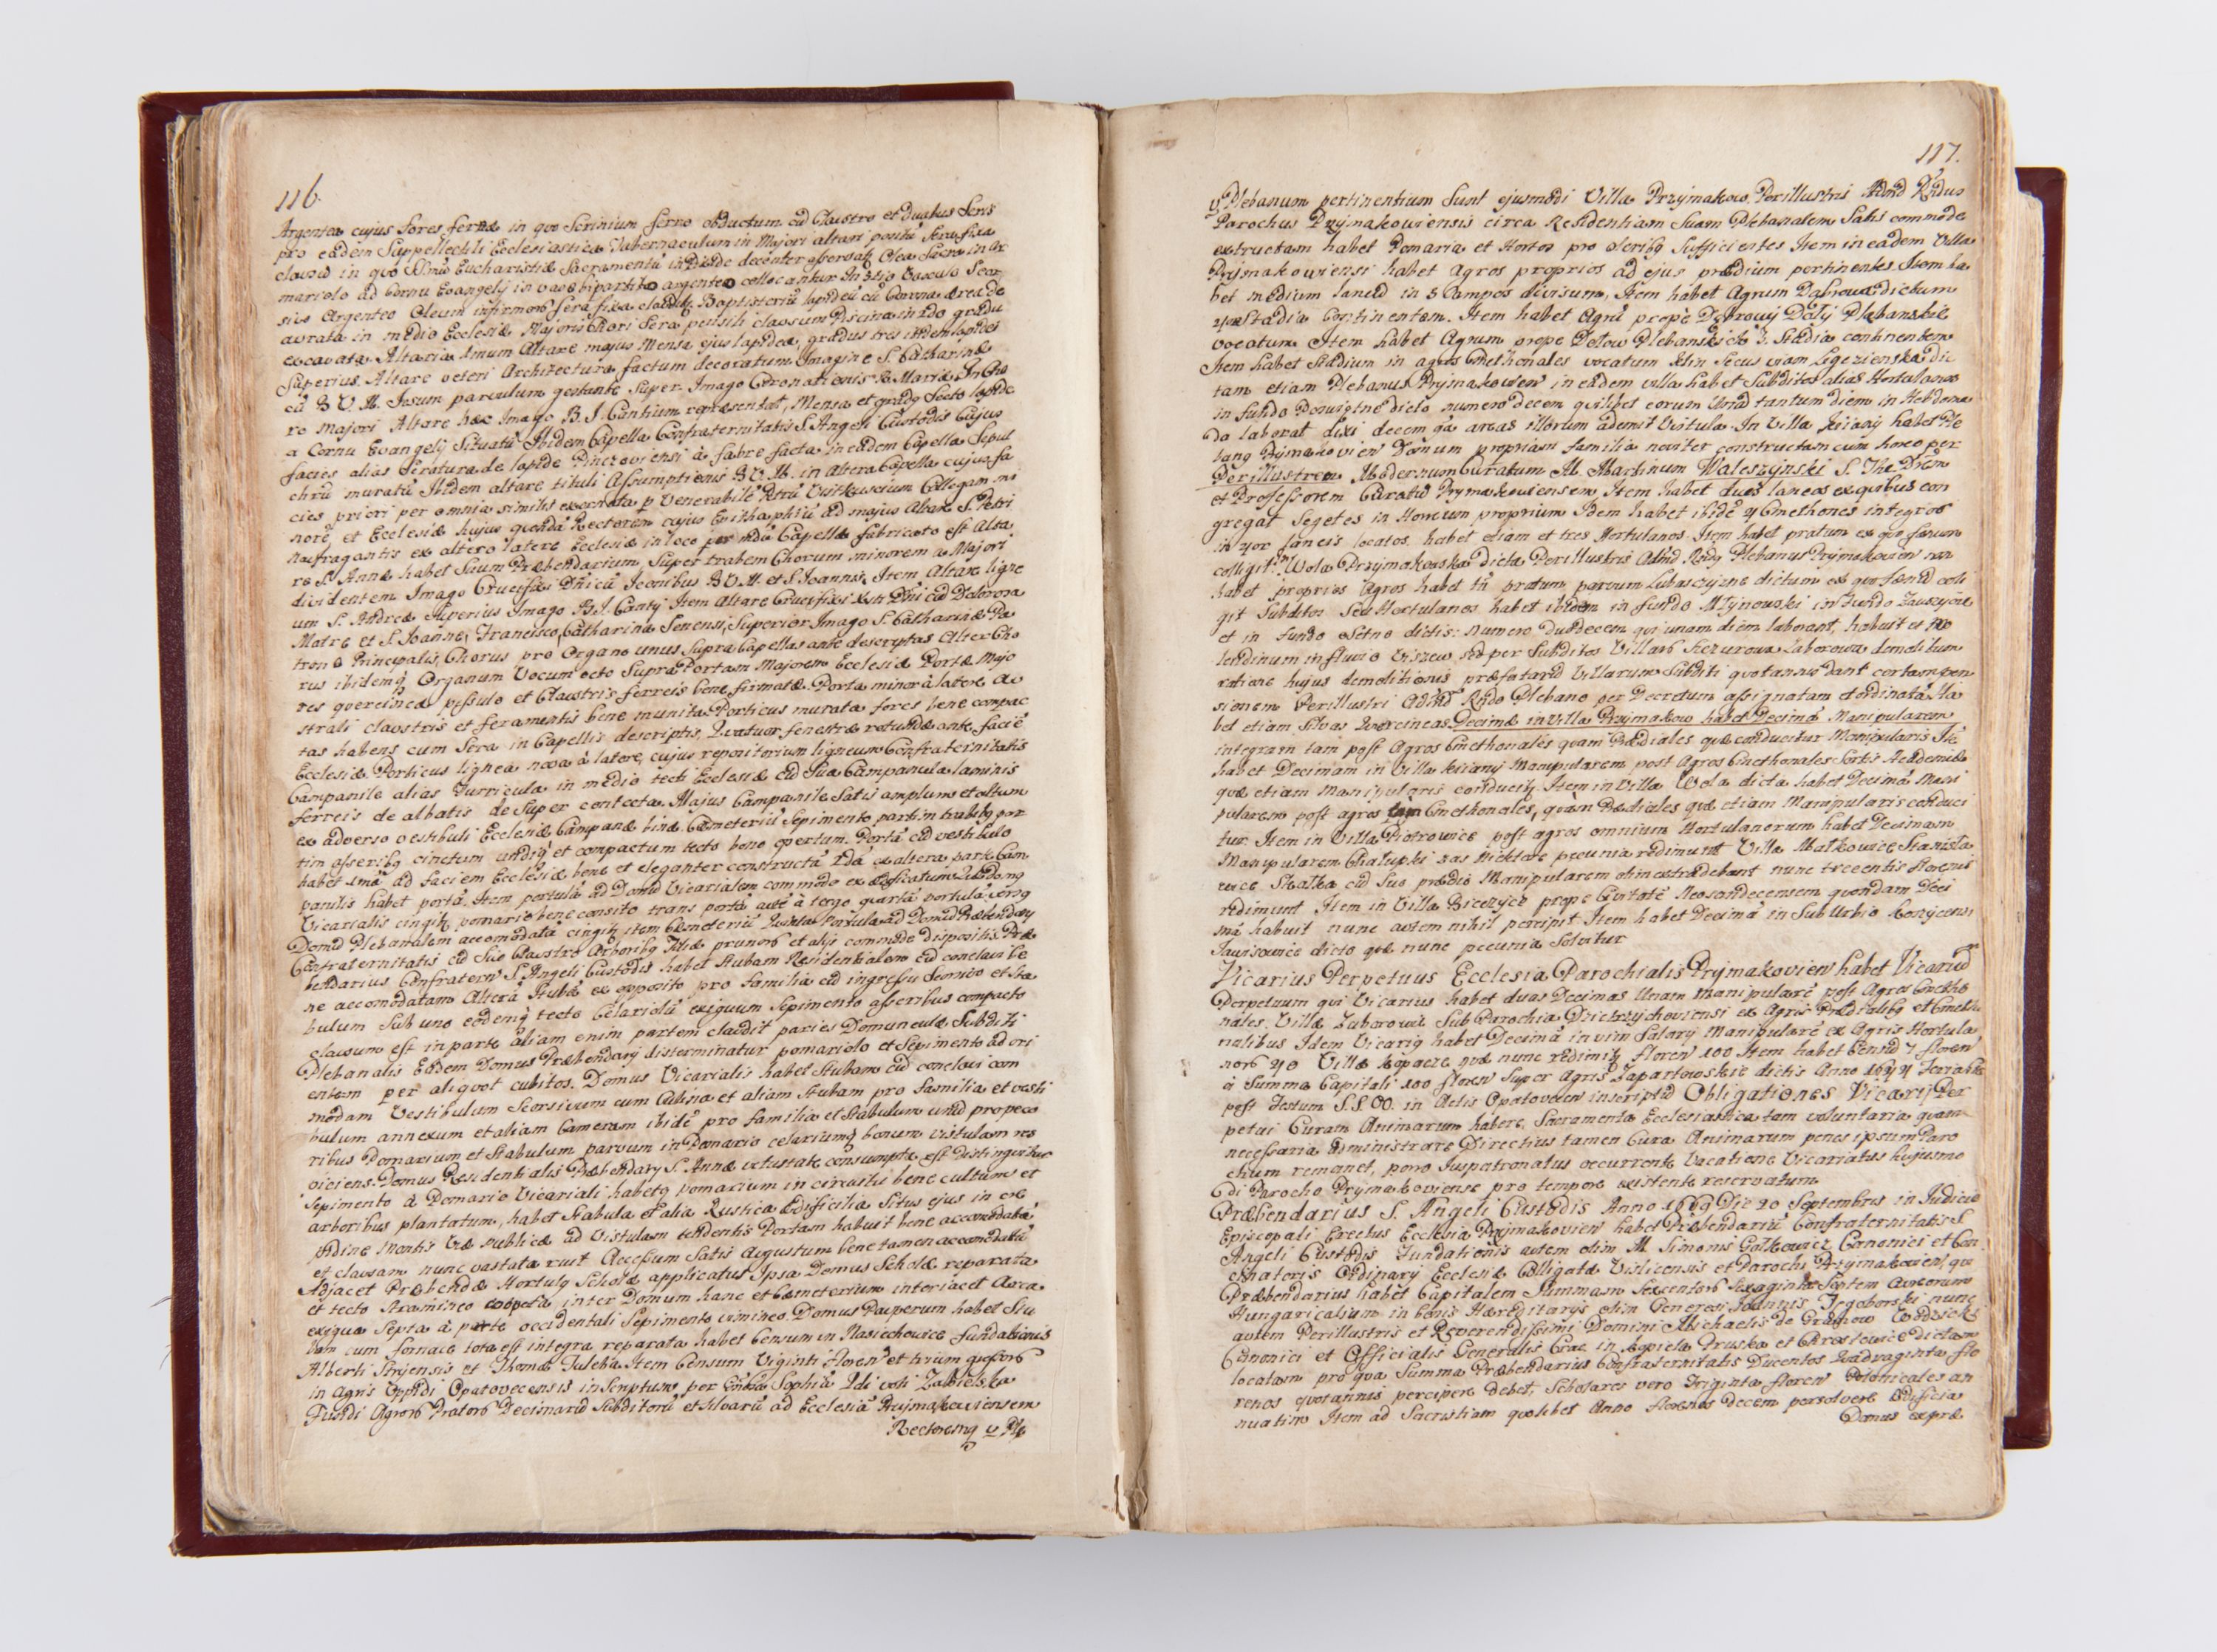 116.
Argentea cujus fores ferreæ in quo Scrinium ferro obductum cũ Claustro et duabus Seris
pro eadem Suppellectili Ecclesiastica Tabernaculum in Majori altari positũ Sera fixa
clausũ in quo Eucharistiæ Sacramentũ in Pixide decenter asservatꝫ Olea Sacra in Ar
mariolo ad Cornu Evangelÿ in vase bipartito argenteo collocantur In Vasculo Seor
sivo Argenteo Oleum infirmorũ Sera fixa Baptisteriũ lapideũ cũ Corona ærea de
aurata in medio Ecclesiæ Majoris Chori Sera pensili clausum Piscina in gradu
excavata. Altaria Altare majus Mensa ejus lapidea, gradus tres itidem lapidei
Superius. Altare veteri Architectura factum decoratum Imagine S. Catharinæ
cũ B V. M. Jesum parvulum gestante Super Imago Coronationis B. Mariæ In Cho
ro Majori Altare hæc Imago B. J. Cantium repræsentat, Mensa et gradꝫ Secto lapide
a Cornu Evangelÿ Situatũ Ibidem Capella Confraternitatis S. Angeli Custodis Cujus
facies alias Seratura de lapide Pinczoviensi à fabre facta in eadem Capella Sepul
chrũ muratũ Ibidem altare tituli Assumptionis B. V. M. in Altera Capella cujus fa
cies priori per omnia similis Venerabile Petrũ Collegam mi
norẽ et Ecclesiæ hujus quendã Rectorem cujus Epithaphiũ ad majus Altare S. Petri
naufragantis ex altero latere Ecclesiæ in loco Capellæ fabricato est Alta
re S. Annæ habet Suum Præbendarium Super trabem Chorum minorem a Majori
dividentem Imago Crucifixi Dñi cũ Iconibus B V. M. et S. Joannis, Item Altare ligne
um S. Andreæ Superius Imago B. J. Canty Item Altare Crucifixi Dñi cũ Dolorosa
Matre et S. Joanne, Francisco, Catharina Senensi, Superior Imago S. Catharinæ Pa
tronæ Principalis, Chorus pro Organo unus Supra Capellas ante descriptas Alter Cho
rus ibidemꝗ Organum Vocum octo Supra Portam Majorem Ecclesiæ Portæ Majo
res quercineæ pessulo et Claustris ferreis bene firmatæ. Porta minor à latere Au
strali claustris et feramentis bene munita Porticus murata fores bene compac
tas habens cum Sera in Capellis descriptis, Quatuor fenestræ rotundæ ante faciẽ
Ecclesiæ. Porticus lignea nova à latere, cujus repositorium ligneum Confraternitatis
Campanile alias Turricula in medio tecti Ecclesiæ cũ Sua Campanula laminis
ferreis de albatis de Super contecta. Majus Campanile Satis amplum et altum
ex adverso vestibuli Ecclesiæ Campanæ binæ. Cæmeteriũ Sepimento partim trabibꝫ par
tim asseribꝫ cinctum undiqꝫ et compactum tecto bono opertum. Portã cũ vestibulo
habet 1mã ad faciem Ecclesiæ bene et eleganter constructã 2dã ex altera parte Cam
panilis habet portã. Item portulã ad Domũ Vicarialem commodo ex ædificatum
Vicarialis cingitꝫ pomario bene consito trans portã autẽ à tergo quartã portulã
Domũ Plebanalem accomodatã cingitꝫ item Cæmeteriũ Quintã Portulã ad Domũ Præbendary
Confraternitatis cũ Suo Claustro Arboribꝫ Tiliæ prunorũ et alÿs commode dispositis. Præ
bendarius Confratern̄ S. Angeli Custodis habet Stubam Residentialem cũ conclavi be
ne accomodatam Alterã Stubã ex opposito pro familia cũ ingressu Seorsivo et Sta
bulum Sub uno eodemꝗ tecto Celariolũ exiguum Sepimento asseribus compacto
clausum est in parte aliam enim partem claudit paries Domunculæ Subditi
Plebanalis Eadem Domus Præbendarÿ disterminatur pomariolo et Sepimento ad ori
entem per aliquot cubitos. Domus Vicarialis habet Stubam cũ conclavi com
modam Vestibulum Seorsivum cum Culina et aliam Stubam pro familia et vesti
bulum annexum et aliam Cameram ibidẽ pro familia et Stabulum unũ pro peco
ribus Pomarium et Stabulum parvum in Pomario celariumꝗ bonum Vistulam res
piciens. Domus Residentialis Præbendarÿ S. Annæ vetustate consumpta est distinguitur
Sepimento à Pomario Vicariali habetꝗ pomarium in circuitu bene cultum et
arboribus plantatum, habet Stabula et alia Rustica Ædificilia Situs ejus in cre
pidine Montis Viæ publicæ ad Vistulam tendentis Portam habuit bene accomodatã
et clausam nunc vastata ruit Accessum Satis Angustum bene tamen accomodatũ
Adjacet Præbendæ Hortulꝫ Scholæ applicatus Ipsa Domus Scholæ reparata
et tecto Stramineo cooperta inter Domum hanc et Cæmeterium interiacet Area
exigua Septa à parte occidentali Sepimento vimineo. Domus Pauperum habet Stu
bam cum fornace tota est integra reparata habet Censum in Nasiechowice fundationis
Alberti Stryiensis et Thomæ Item Censum Viginti floren̄ et trium grossorũ
in Agris Oppidi Opatovecensis inscriptum per Sophiã
Fundi Agrorũ Pratorũ Decimarũ Subditorũ et Silvarũ ad Ecclesiã Przÿmakoviensem
Rectoremꝗ Ple
117.
Plebanum pertinentium Sunt ejusmodi Villa Przymakow. Perillustris Admũ Rñdus
Parochus Przÿmakowiensis circa Residentiam Suam Plebanalem Satis commode
extructam habet Pomaria et Hortos pro oleribꝫ Sufficientes Item in eadem Villa
Przÿmakowiensi habet Agros proprios ad ejus prædium pertinentes. Item ha
bet medium laneũ in 3 Campos divisum, Item habet Agrum Dabrowa dictum
Stadia continentem. Item habet Agrũ prope Dabrowÿ Doly Plebanskie
vocatum. Item habet Agrum prope Plebanskie 3. Stadia continentem
Item habet Stadium in agros Cmethonales vocatum Klin Secus viam dic
tam etiam Plebanus Przÿmakovien̄ in eadem villa habet Subditos alias Hortulanos
in fundo dicto numero decem quilibet eorum unũ tantum diem in Hebdoma
da laborat dixi decem areas illorum ademit Vistula. In Villa habet Ple
banꝫ Przÿmakovien̄ Domum propriam familiæ noviter constructam cum horreo per
Perillustrem Modernum Curatum M. Martinum Waleszÿnski S. Th. Drẽm
et Professorem Curatũ Przÿmakoviensem. Item habet duos laneos ex quibus con
gregat Segetes in Horreum proprium Idem habet ibidẽ Cmethones integros
in laneis locatos. habet etiam et tres Hortulanos. Item habet pratum ex quo fœnum
colligit. Wola Przÿmakowska dicta Perillustris Admũ Rndꝫ Plebanus Przÿmakovien̄ non
habet proprios Agros habet tñ pratum parvum Lubaszczÿzna dictum ex quo fœnũ coli
git Subditos Seu Hortulanos habet ibidem in fundo Młÿnowski in fundo
et in fundo dictis: numero duodecem qui unam diem laborant, habuit et
lendinum in fluvio sed per Subditos Villarũ demolitum
ratione hujus demolitionis præfatarũ Villarum Subditi quotannis dant certam pen
sionem Perillustri Admũ Rñdo Plebano per Decretum assignatam et ordinatã Ha
bet etiam Silvas Quercineas. Decimæ in Villa Przÿmakow habet Decimã Manipularem
integram tam post Agros Cmethonales quam Prædiales quæ conducitur Manipularis Itẽ
habet Decimam in Villa Manipularem post Agros Cmethonales Sortis Academicæ
quæ etiam Manipularis conducitꝫ. Item in Villa Wola dicta habet Decimã Mani
pularem post agros tam Cmethonales, quàm Prædiales quæ etiam Manipularis conduci
tur. Item in Villa Piotrowice post agros omnium Hortulanorum habet Decimam
Manipularem Chałupki pecunia redimunt Villa Małkowice Stanisla
wice Skałka cũ Suo prædio Manipularem olim extradebant nunc trecentis florenis
redimunt Item in Villa Biczÿcze prope Civitatẽ Neosandecensem quondam Deci
mã habuit nunc autem nihil percipit Item habet Decimã in Sub Urbio
dicto quæ nunc pecunia Solvitur
Vicarius Perpetuus Ecclesia Parochialis Przÿmakovien̄ habet Vicariũ
Perpetuum qui Vicarius habet duas Decimas Unam Manipularẽ post Agros Cmetho
nales. Villæ Zaborowie Sub Parochia ex Agris Prædialibꝫ et Cmetho
nalibus Idem Vicariꝫ habet Decimã in vim Salarÿ Manipularẽ ex Agris Hortula
norũ Villæ quæ nunc redimitꝫ floren̄ 100 Item habet Censũ 7 floren̄
à Summa Capitali 100 floren̄ Super Agris Zapartowskie dictis Anno
post Festum S.S. OO. in Actis Opatovecen̄ inscriptũ Obligationes Vicarÿ Per
petui Curam Animarum habere, Sacramenta Ecclesiastica tam voluntaria quam
necessaria administrare Directius tamen Cura Animarum penes ipsum Paro
chum remanet, porro Juspatronatus occurrente Vacatione Vicariatus hujusmo
di Parocho Przÿmakoviense pro tempore existente reservatum.
Præbendarius S. Angeli Custodis Anno 1669 Die 20 Septembris in Judicio
Episcopali Erectus Ecclesia Przÿmakovien̄ habet Præbendariũ Confraternitatis S.
Angeli Custodis Fundationis autem olim M. Simonis Gołkowicz Canonici et Con
cionatoris Ordinarÿ Ecclesiæ Colligatæ Vislicensis et Parochi Przÿmakovien̄, qui
Præbendarius habet Capitalem Summam Sexcentorũ Sexaginta Septem Aureorum
Hungaricalium in bonis Hæreditarÿs olim Generosi Joannis Jegoborski nunc
autem Perillustris et Reverendissimi Domini Michaelis de Granow Wodzicki
Canonici et Officialis Generalis Crac. in Bruska et dictam
locatam pro qua Summa Præbendarius Confraternitatis Ducentos Quadraginta flo
renos quotannis percipere debet, Scholares vero Triginta floren̄ Polonicales an
nuatim Item ad Sacristiam quolibet Anno florenos decem persolvere Ædificia
Domus ex præ